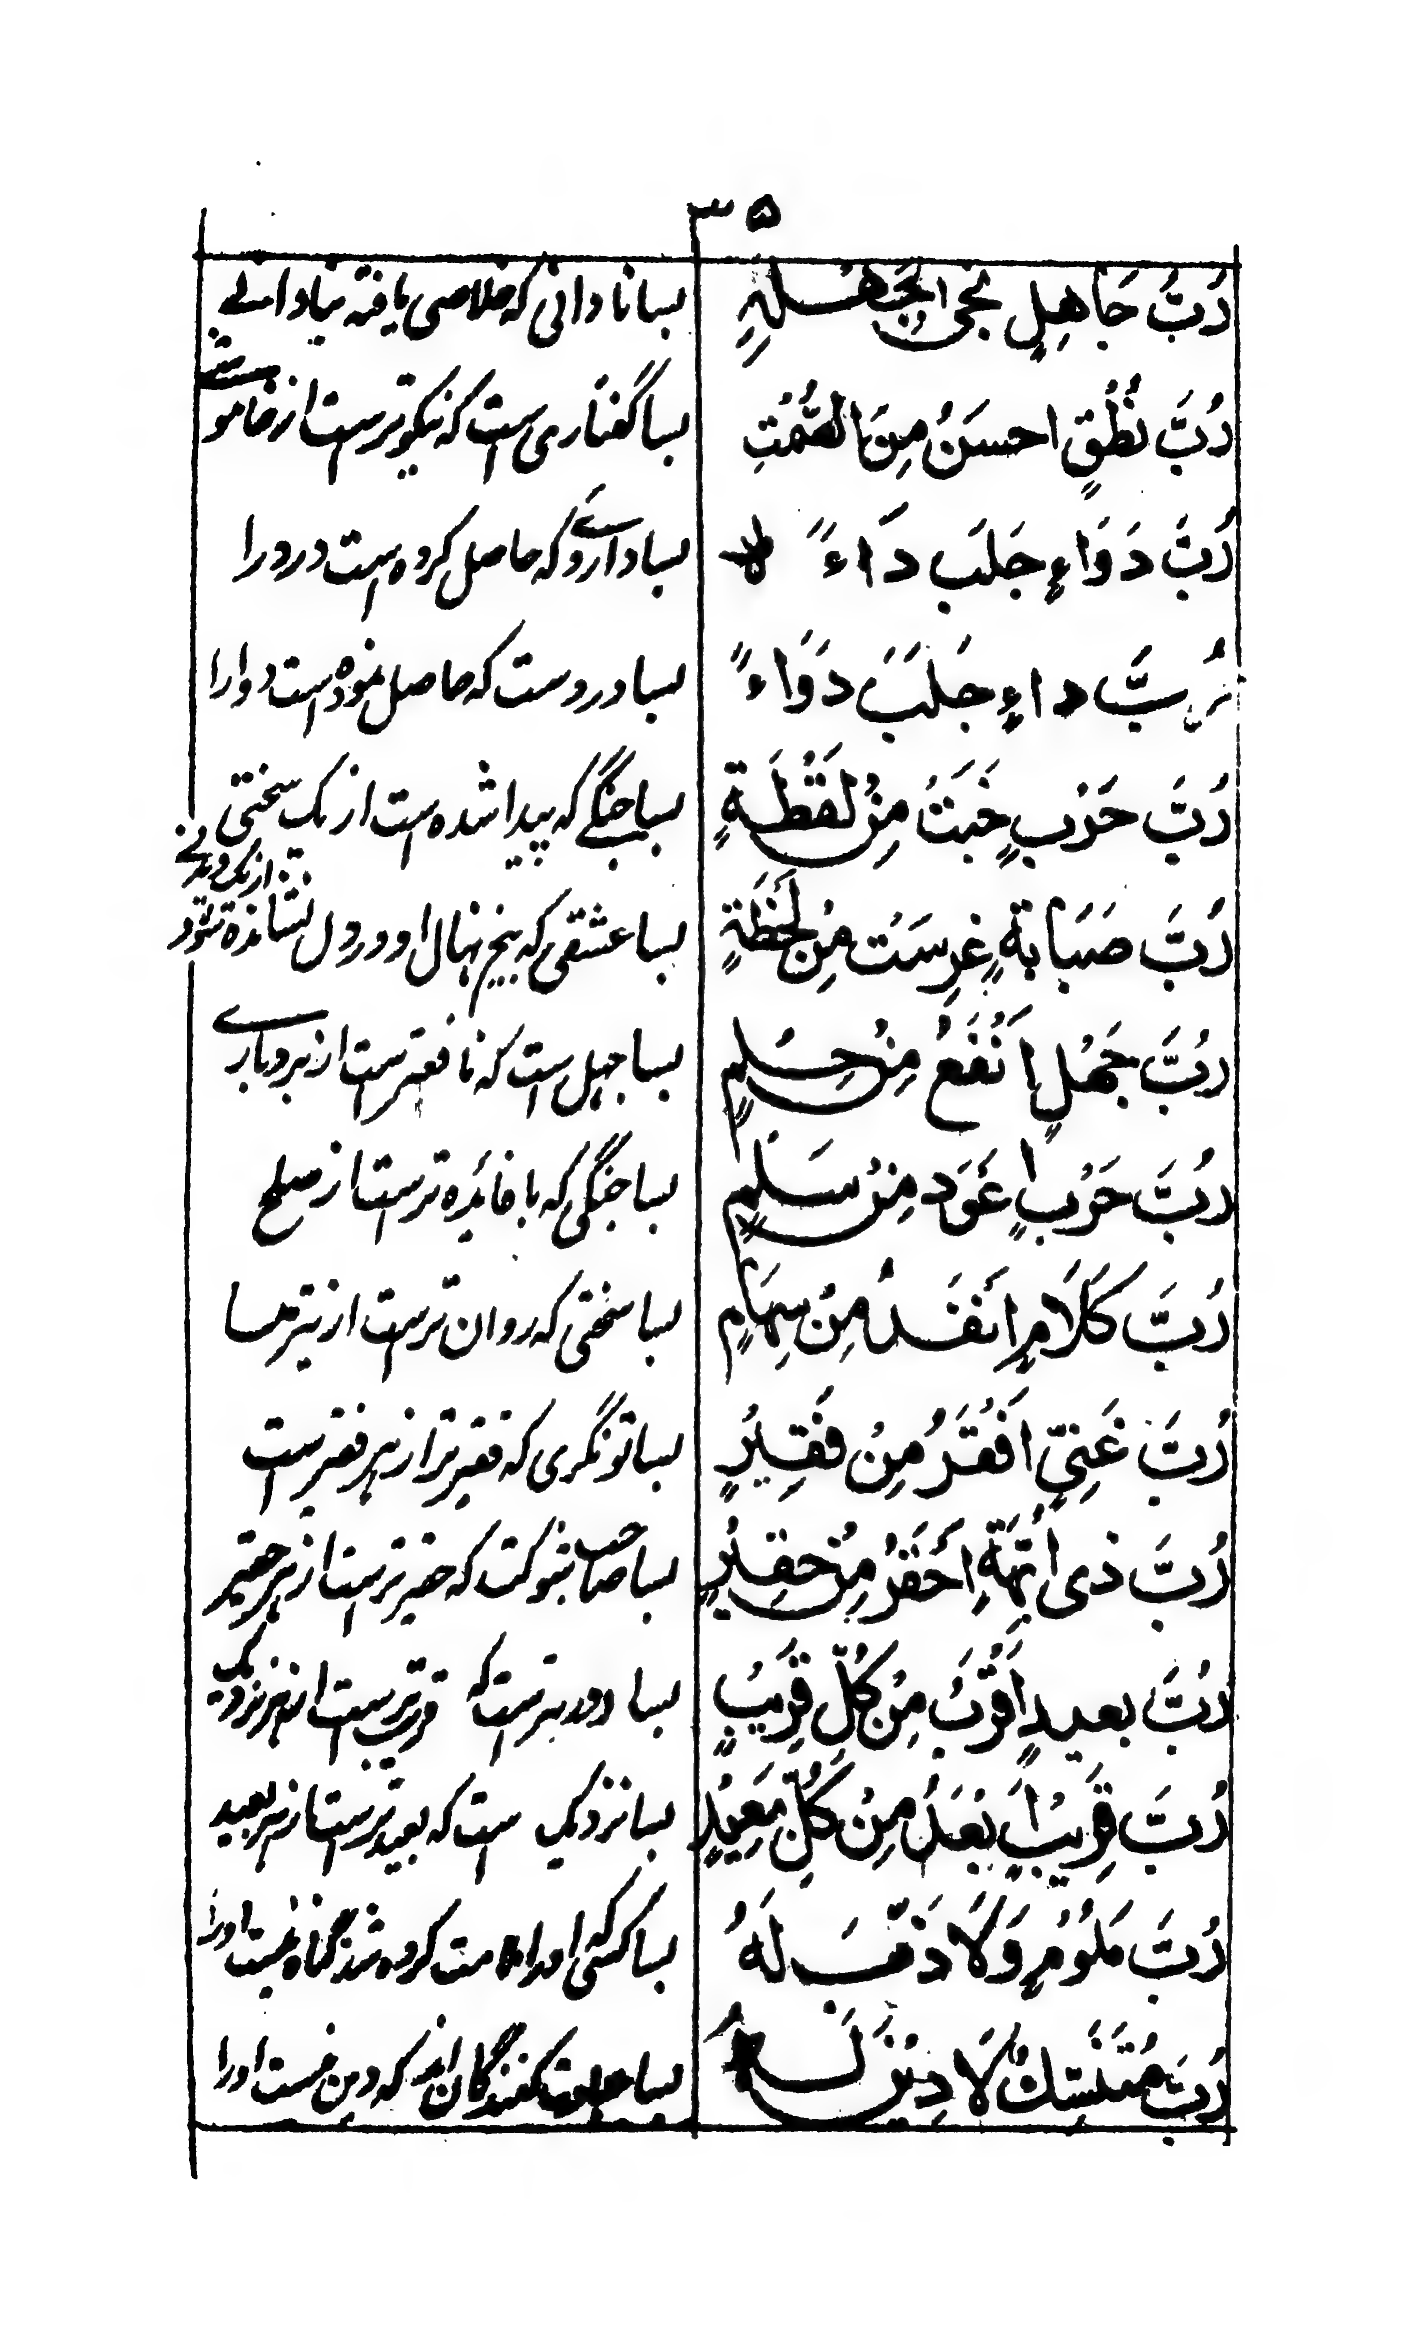 ۳۵
رُبَّ جَاهِلٍ نَجٰى بِجَهْلِهٖ بسا نادانی که خلاصی یافته بنادانی
رُبَّ نُطْقٍ احسَنُ مِنَ الصُّمْتِ بسا گفتاری ست که نیکوترست از خاموشی
رُبَّ دَوَاءٍ جَلَبَ دَاءً بسا داروے که حاصل کرده است درد را
رُبَّ داءٍ جَلَبَ دَوَاءً بسا دردست که حاصل نموده است دوا را
رُبَّ حَرْبٍ جَنَتْ مِنْ لَفْظَةٍ بسا جنگے که پیدا شده است از یک سخنی
رُبَّ صَبَابَةٍ غُرِسَتْ مِنْ لَحْظَةٍ بسا عشقی که بیخ نهال او در دل نشانده شود از یک دیدنے
رُبَّ جَهْلٍ اَنْفَعُ مِنْ حِلْمٍ بسا جهل ست که نافع ترست از بردبارے
رُبَّ حَرْبٍ اَعْوَد مِنْ سَلْمٍ بسا جنگی که با فائده ترست از صلح
رُبَّ كَلَامٍ اَنْفَذُ مِنْ سِهَامٍ بسا سخنی که روان ترست از تیرها
رُبَّ غَنِيٍّ اَفْقَرُ مِنْ فَقِيْرٍ بسا تونگری که فقیرتر از هر فقیرست
رُبَّ ذى اُبَّهَةٍ اَحْقَرُ مِنْ حَقِيْرٍ بسا صاحب شوکت که حقیرترست از هر حقیر
رُبَّ بعيدٍ اَقْرَبُ مِنْ كُلِّ قَرِيْبٍ بسا دور ترست که قریب ترست از هر نزدیک
رُبَّ قَرِيْبٍ اَبْعَدُ مِنْ كُلِّ بَعِيْدٍ بسا نزدیک ست که بعیدترست از هر بعید
رُبَّ مَلُوْمٍ وَلَا ذَنْبَ لَهُ بسا کسی که او را ملامت کرده شد گناه نیست او را
رُبَّ مُتَنَسِّكٌ لَا دِيْنَ لَهُ بسا عبادت کنندگان اند که دین نیست او را